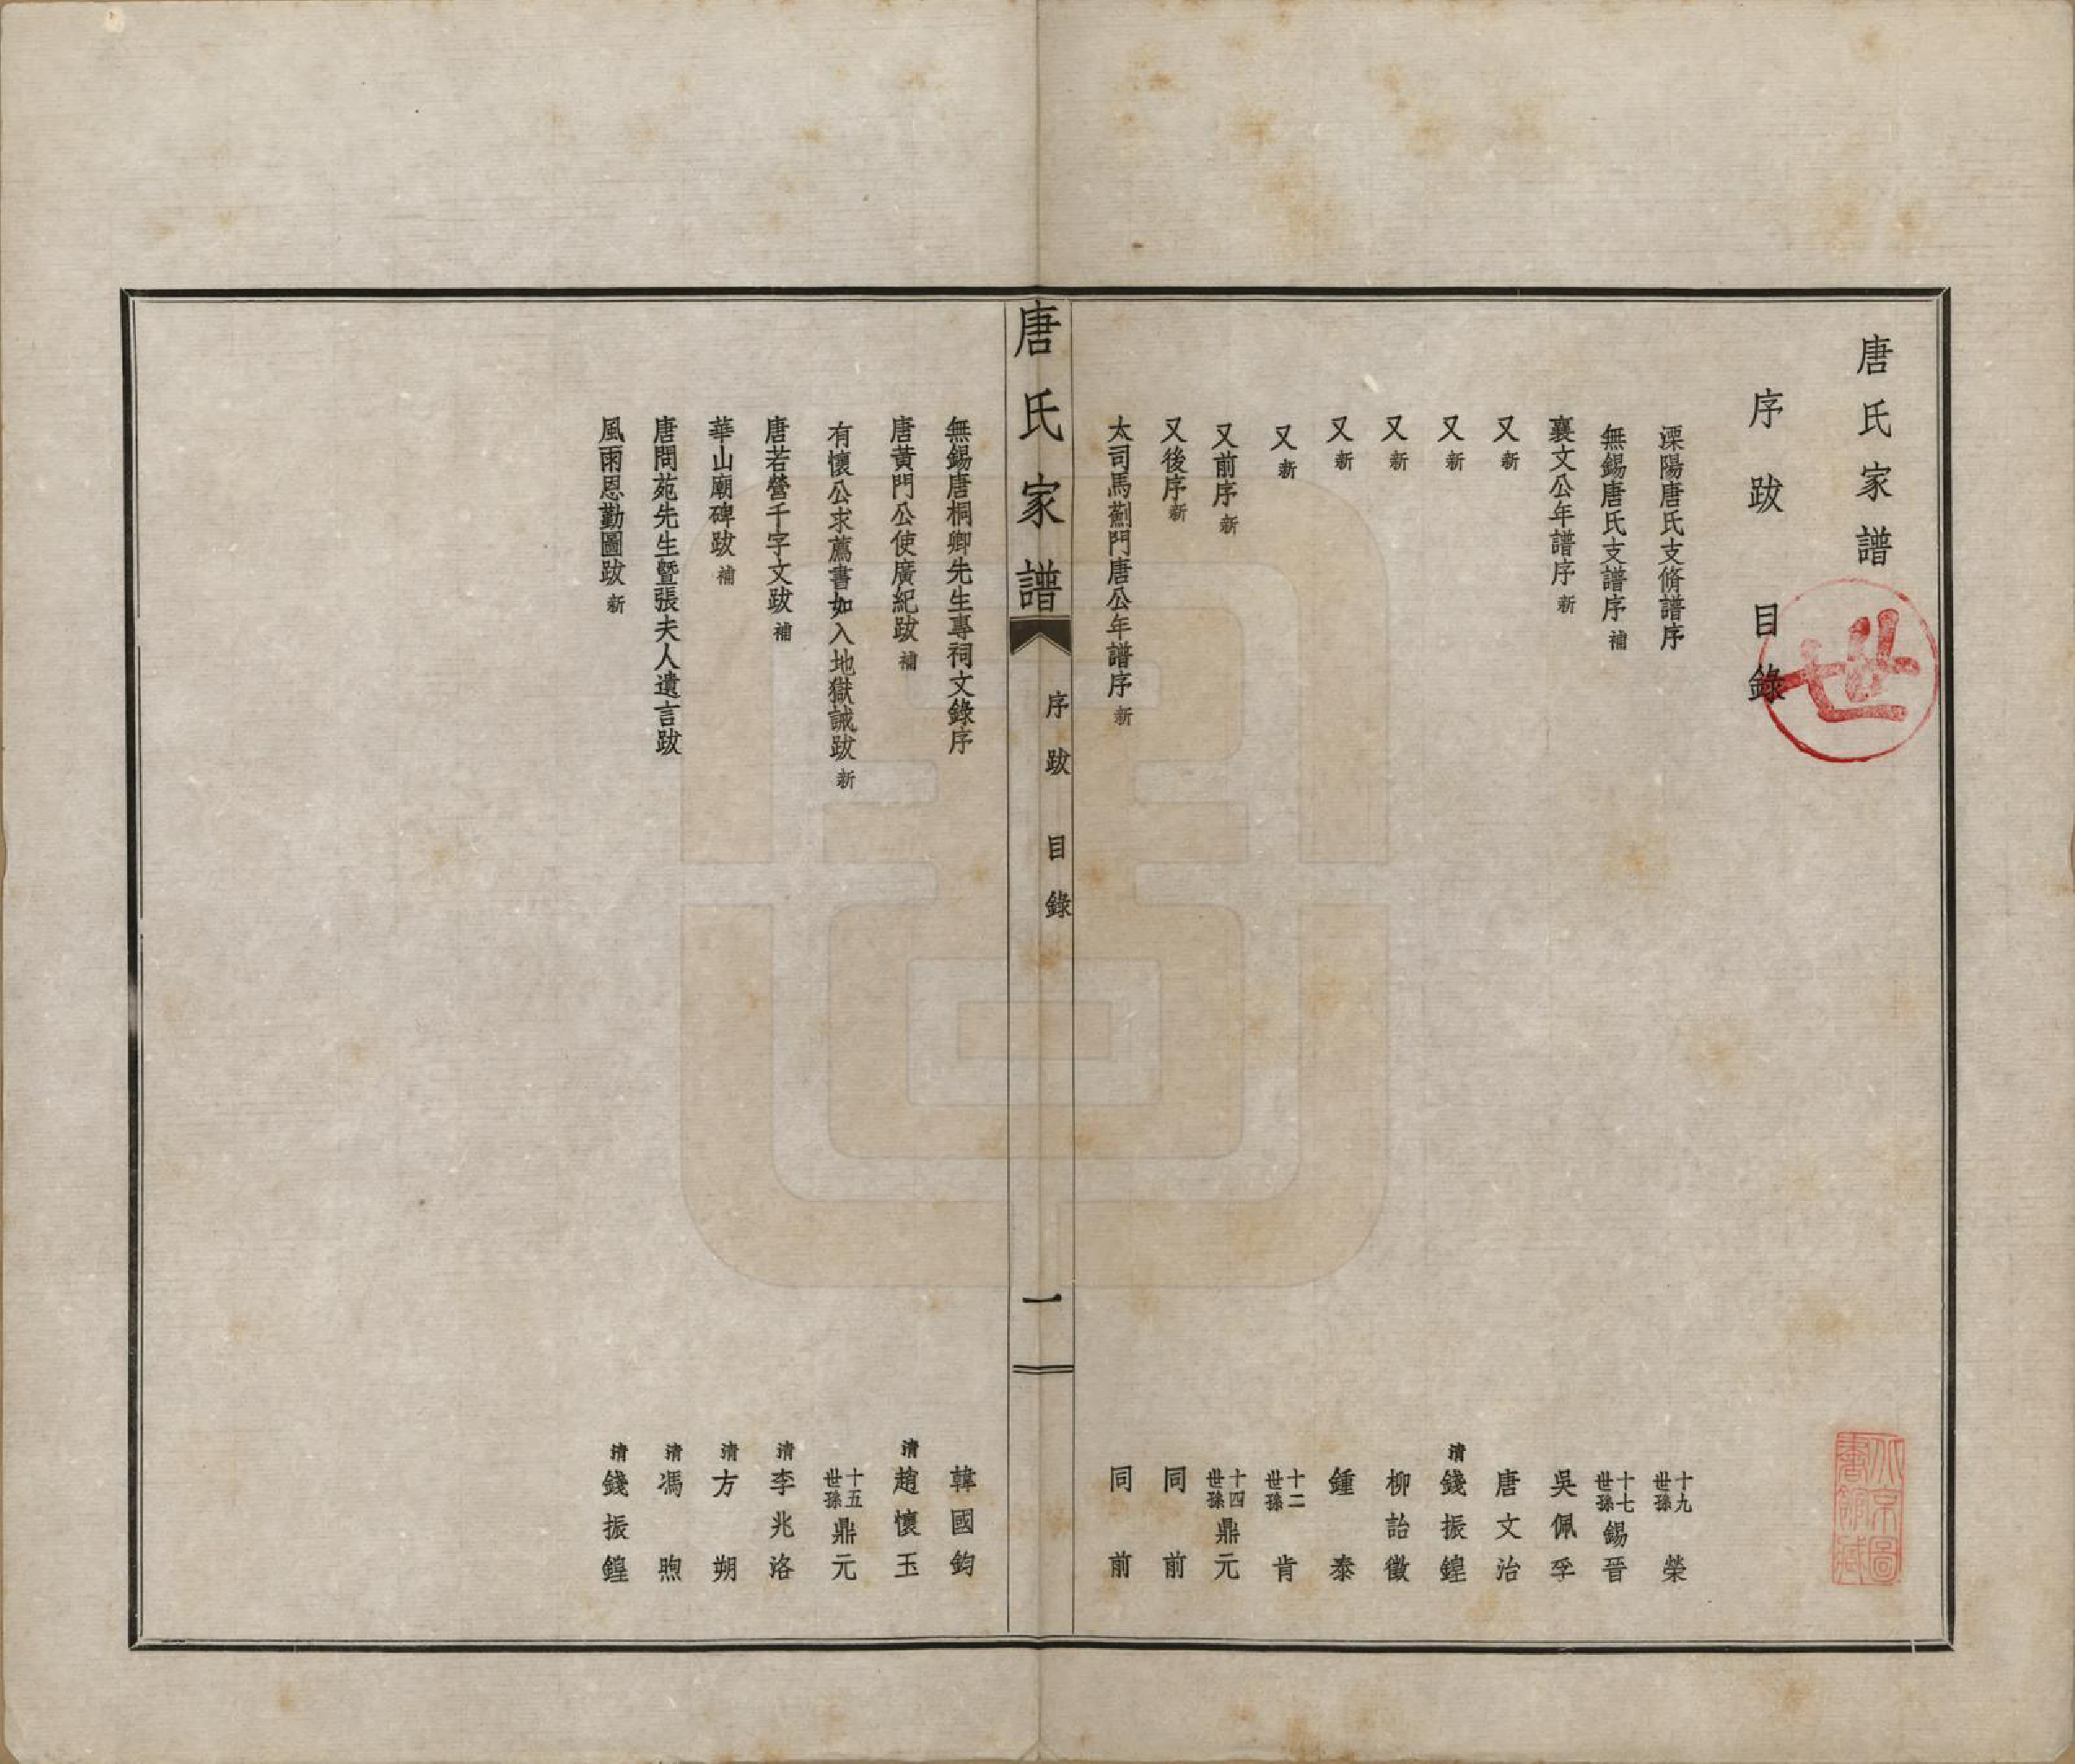 唐氏家譜
序跋目錄
溧陽唐氏支脩譜序 十九世孫 榮
無錫唐氏支譜序 補 十七世孫 錫晉
襄文公年譜序 新 吳佩孚
又 新 唐文治
又 新 清 錢振鍠
又 新 柳詒徵
又 新 鍾泰
又 新 十二世孫 肯
又前序 新 十四世孫 鼎元
又後序 新 同前
太司馬薊門唐公年譜序 新 同前
唐氏家譜 序跋 目錄 一
無錫唐桐卿先生專祠文錄序 韓國鈞
唐黃門公使廣紀跋 補 清 趙懷玉
有懷公求薦書如入地獄誡跋 新 十五世孫 鼎元
唐若營千字文跋 補 清 李兆洛
華山廟碑跋 補 清 方朔
唐問苑先生暨張夫人遺言跋 清 馮煦
風雨恩勤圖跋 新 清 錢振鍠
世
北京圖書館藏